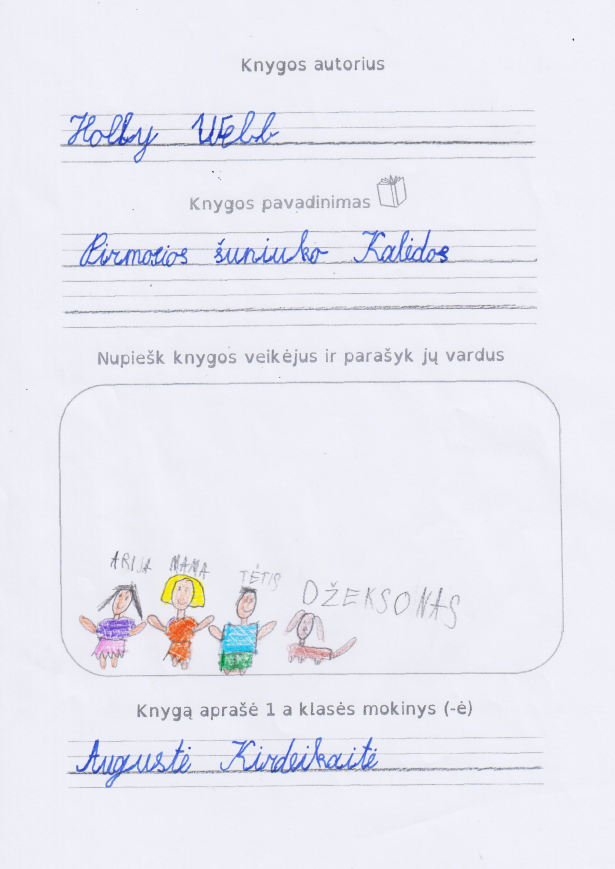 Knygos autorius
Holly Webb
Knygos pavadinimas
Pirmosios šuniuko Kalėdos
Nupiešk knygos veikėjus ir parašyk jų vardus
ARIJA MAMA TĖTIS DŽEKSONAS
Knygą aprašė 1 a klasės mokinys (-ė)
Augustė Kirdeikaitė